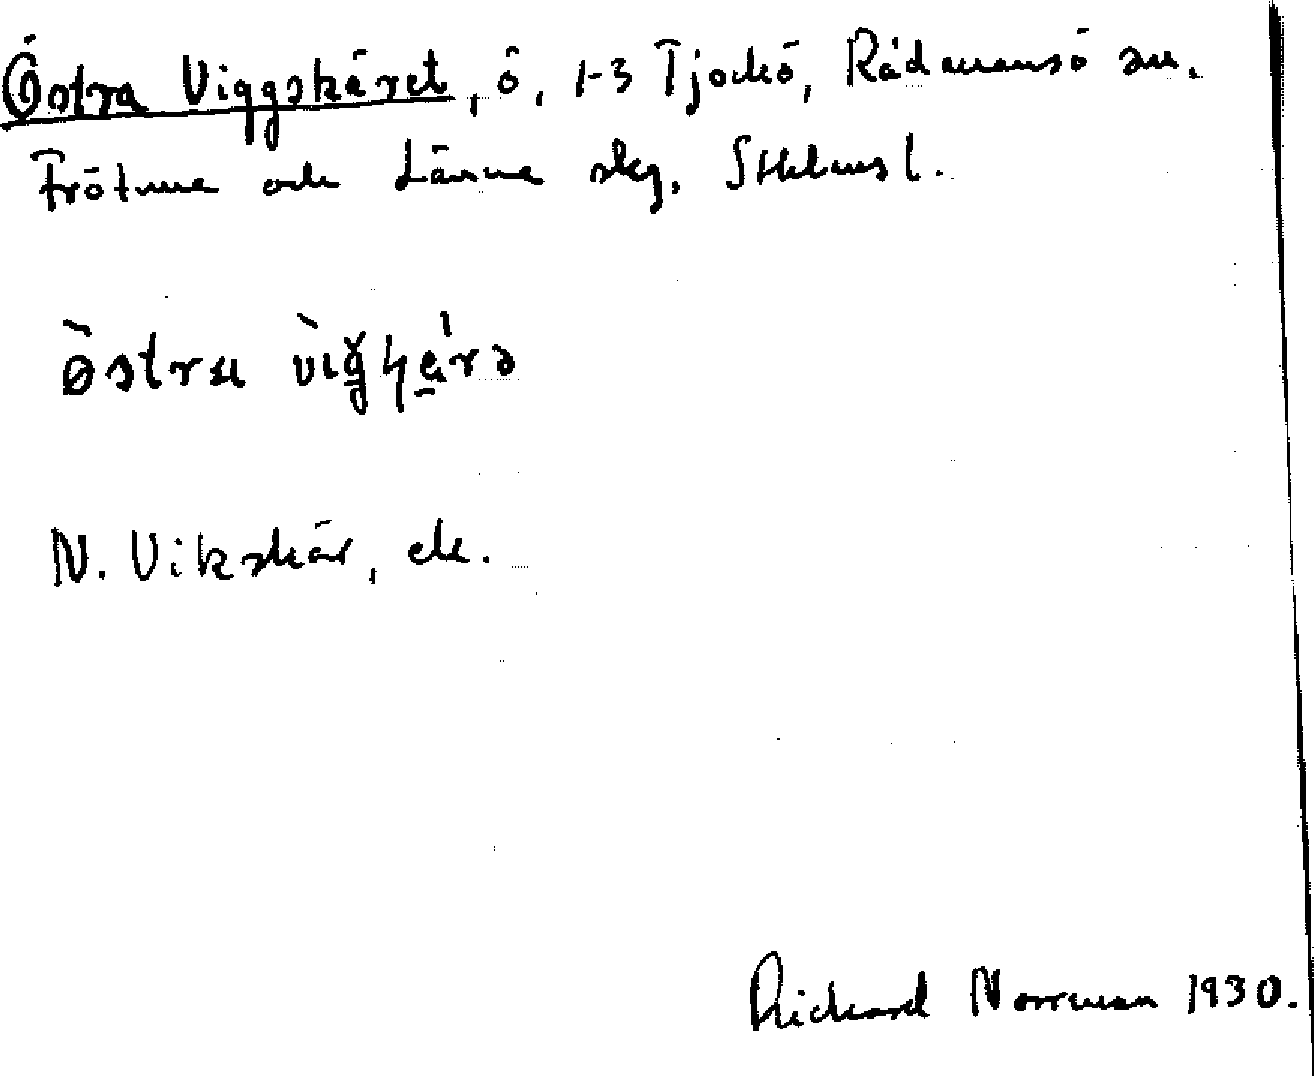 Östra Viggskäret, ö, 1-3 Tjockö, Rådmansö sn.
Frötuna och Länna skg. Sthlms l.
N. Vikskär, ek.
Rickard Norrman 1930.